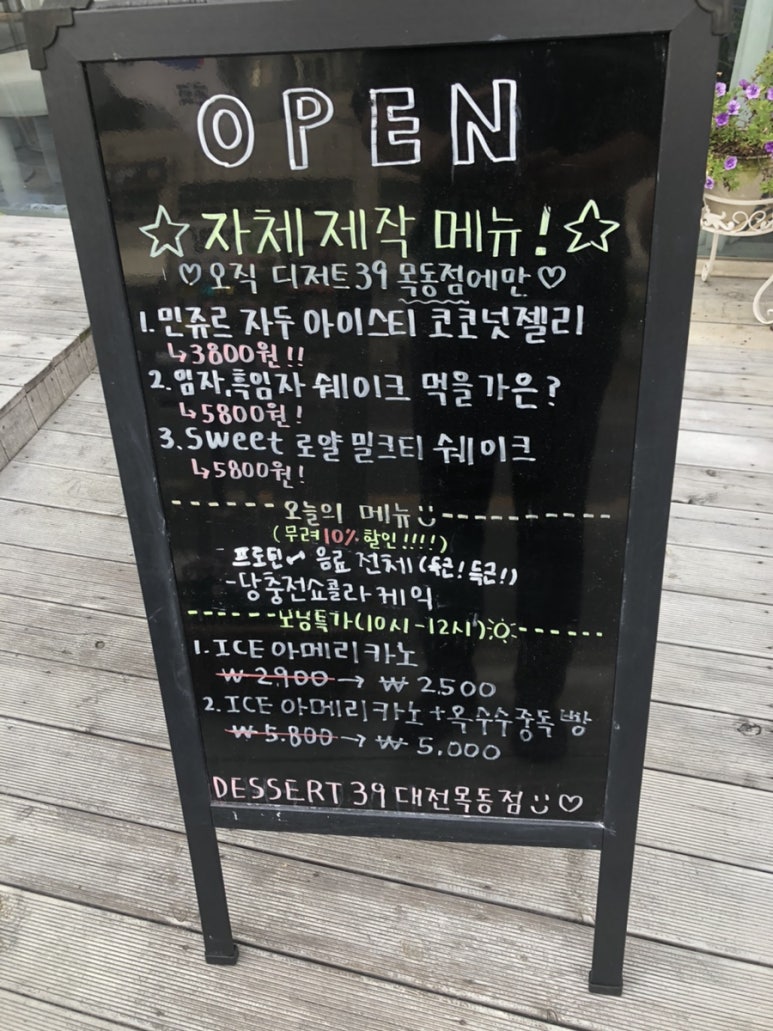 OPEN
☆자체제작 메뉴!☆
♡오직 디저트39 목동점에만♡
1.민쥬르 자두 아이스티 코코넛젤리
↳3800원!!
2.임자,흑임자 쉐이크 먹을가은?
↳5800원!
3.Sweet 로얄 밀크티 쉐이크
↳5800원!
오늘의 메뉴
(무려10%할인!!!!)
프로틴 음료 전체(득근!득근!)
-당충전쇼콜라케익
모닝특가(10시-12시)
1.ICE아메리카노
₩2.900→₩2.500
2.ICE 아메리카노+옥수수중독빵
₩5.800→₩5.000
DESSERT39대전목동점♡